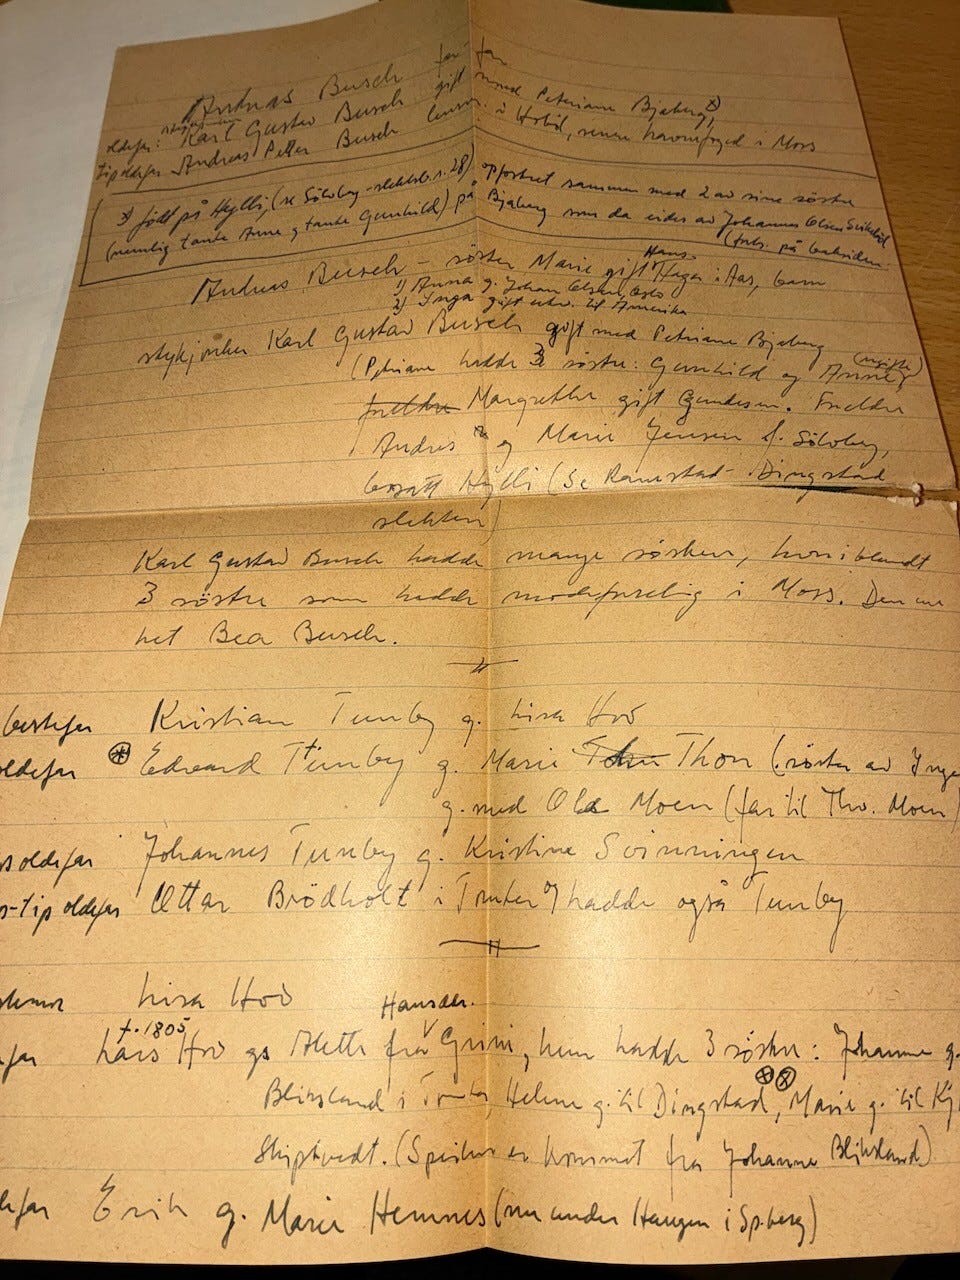 Andreas Busch far-far
oldefar: Karl Gustav Busch gift med Petriane Bjaberg x)
tip oldefar Andreas Petter Busch lensm. i Hobøl, senere havnefoged i Moss
x) født på Hylli, (se Sölvberg-slektsb. s. 28) opfostret sammen med 2 av sine söstre
(nemlig tante Anne g tante Gunhild) på Bjaberg som da eides av Johannes Olsen
(forts. på baksiden
Hans
Andreas Busch - söster Marie gift Haga i Aas, barn
1) Anna g. Johan Olsen, Oslo
2) Inga gift utv. til Amerika
Karl Gustav Busch gift med Petriane Bjaberg
(ugifte)
(Petriane hadde 3 söstre: Gunhild og Anne g
Margrethe gift Gundesen. Foreldre
Andres og Marie Jensen f. Sölvberg,
besatt Hylli (Se Ramstad-Dingstad
slekten)
Karl Gustav Busch hadde mange søsken, hvoriblandt
3 söstre som hadde moteforretning i Moss. Den ene
het Bea Busch.
bestefar Kristian Tunby g. Lisa Hov
oldefar Edvard Tunby g. Marie Thon (söster av Inge
g. med Ole Moen (far til Thv. Moen)
oldefar Johannes Tunby g. Kristine Svinningen
-tip oldefar Ottar Brödholt i Tomter og hadde også Tunby
Lisa Hov
f. 1805 Hansdtr.
far Lars Hov g Alette fra Grini, hun hadde 3 söstre: Johanne g.
Bliksland i Tomter Helene g. til Dingstad, Marie g. til
Skiptvedt. (Speilet er kommet fra Johanne Bliksland)
far Erik g. Marie Hemnes (nu under Haugen i Sp.berg)